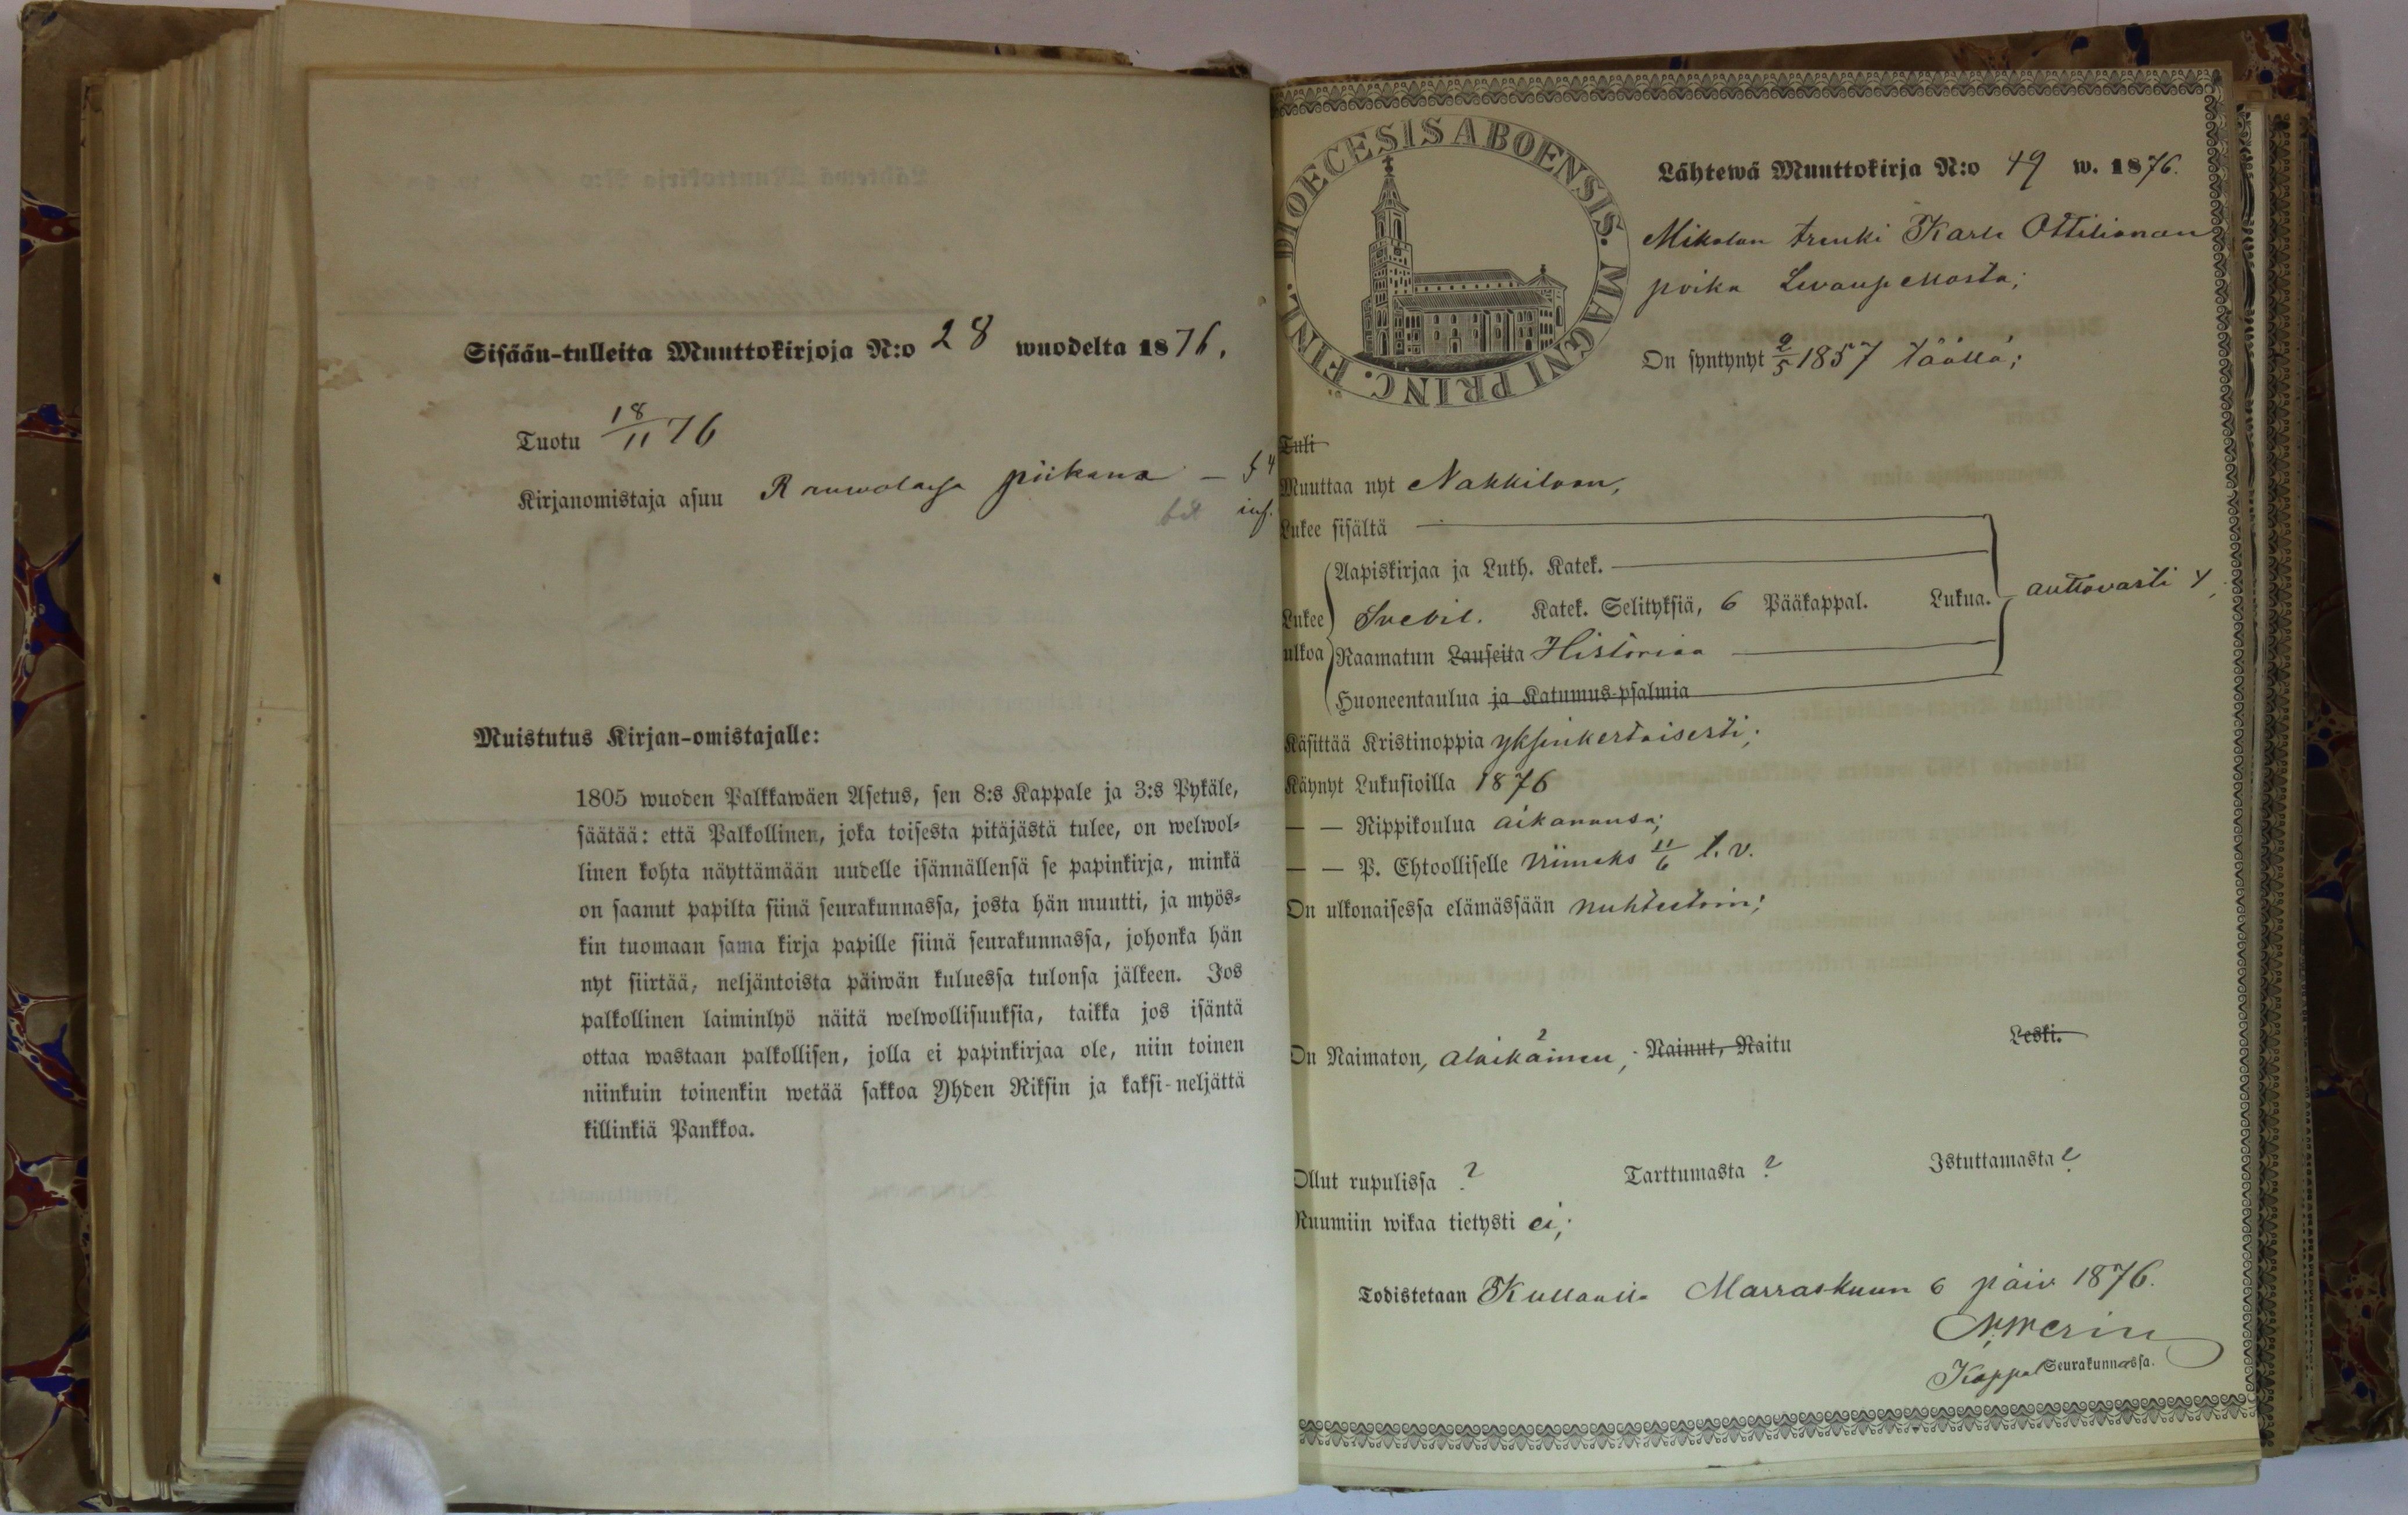 Sisään-tulleita Muuttokirjoja N:o 28 wuodelta 1876.
Tuotu 18/11 76
Kirjanomistaja asuu piikana –
Muistutus Kirjan-omistajalle:
1805 wuoden Palkkawäen Asetus, sen 8:s Kappale ja 3:s Pykäle,
säätää: että Palkollinen, joka toisesta pitäjästä tulee, on welwol-
linen kohta näyttämään uudelle isännällensä se papinkirja, minkä
on saanut papilta siinä seurakunnassa, josta hän muutti, ja myös-
kin tuomaan sama kirja papille siinä seurakunnassa, johonka hän
nyt siirtää, neljäntoista päiwän kuluessa tulonsa jälkeen. Jos
palkollinen laiminlyö näitä welwollisuuksia, taikka jos isäntä
ottaa wastaan palkollisen, jolla ei papinkirjaa ole, niin toinen
niinkuin toinenkin wetää sakkoa Yhden Riksin ja kaksi-neljättä
killinkiä Pankkoa.
DIOECESIS ABOENSIS. MAGNI PRINC. FINL.
Lähtewä Muuttokirja N:o 49 w. 1876.
Mikolan trenki Karle Ottilianan
poika Levanpellosta;
On syntynyt 2/5 1857 täällä;
Tuli
Muuttaa nyt Nakkilaan,
Lukee sisältä
Aapiskirjaa ja Luth. Katek.
Lukee Svebil. Katek. Selityksiä, 6 Pääkappal. Lukua. auttavasti
ulkoa Raamatun Lauseita Historiaa
Huoneentaulua ja Katumus-psalmia
Käsittää Kristinoppia yksinkertaisesti;
Käynyt Lukusioilla 1876
— — Rippikoulua aikanansa;
— — P. Ehtoolliselle viimeks 11/6 t. v.
On ulkonaisessa elämässään nuhteetoin;
On Naimaton, alaikäinen; Nainut, Naitu Leski.
Ollut rupulissa ? Tarttumasta ? Istuttamasta ?
Ruumiin wikaa tietysti ei;
Todistetaan Kullaalla Marraskuun 6 päiv 1876.
Kappel Seurakunnassa.